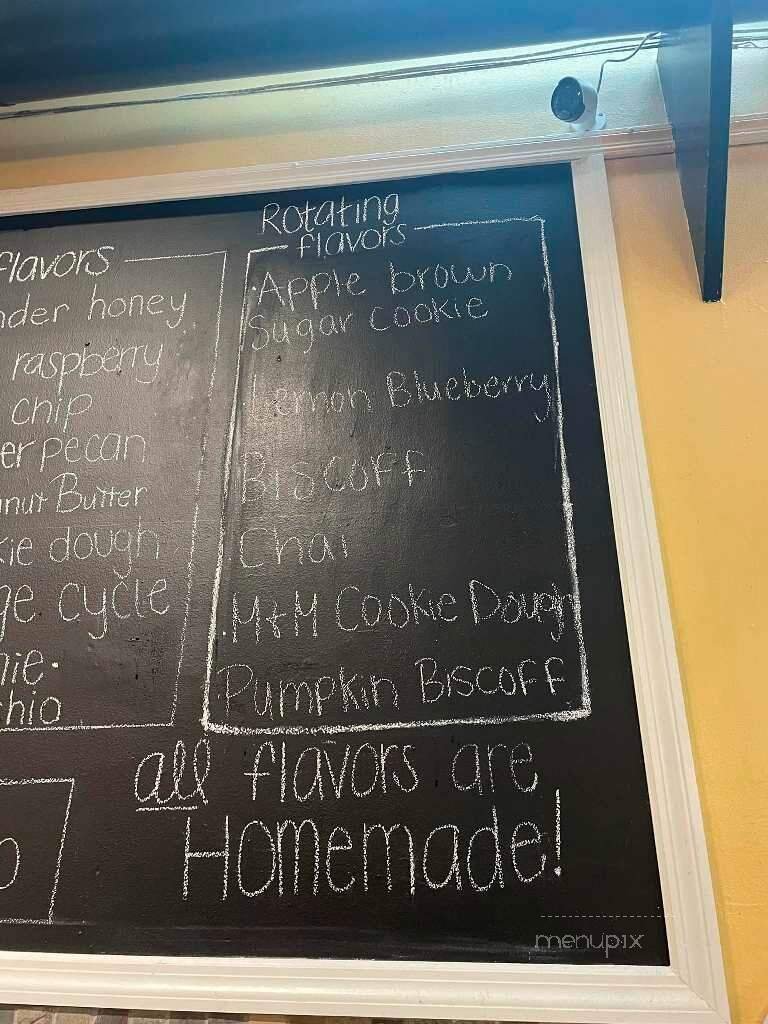 flavors
honey
raspberry
chip
pecan
Butter
dough
cycle
Rotating
flavors
Apple brown
Sugar cookie
Lemon Blueberry
Biscoff
Chai
M&M Cookie Dough
Pumpkin Biscoff
all flavors are
Homemade!
menupix